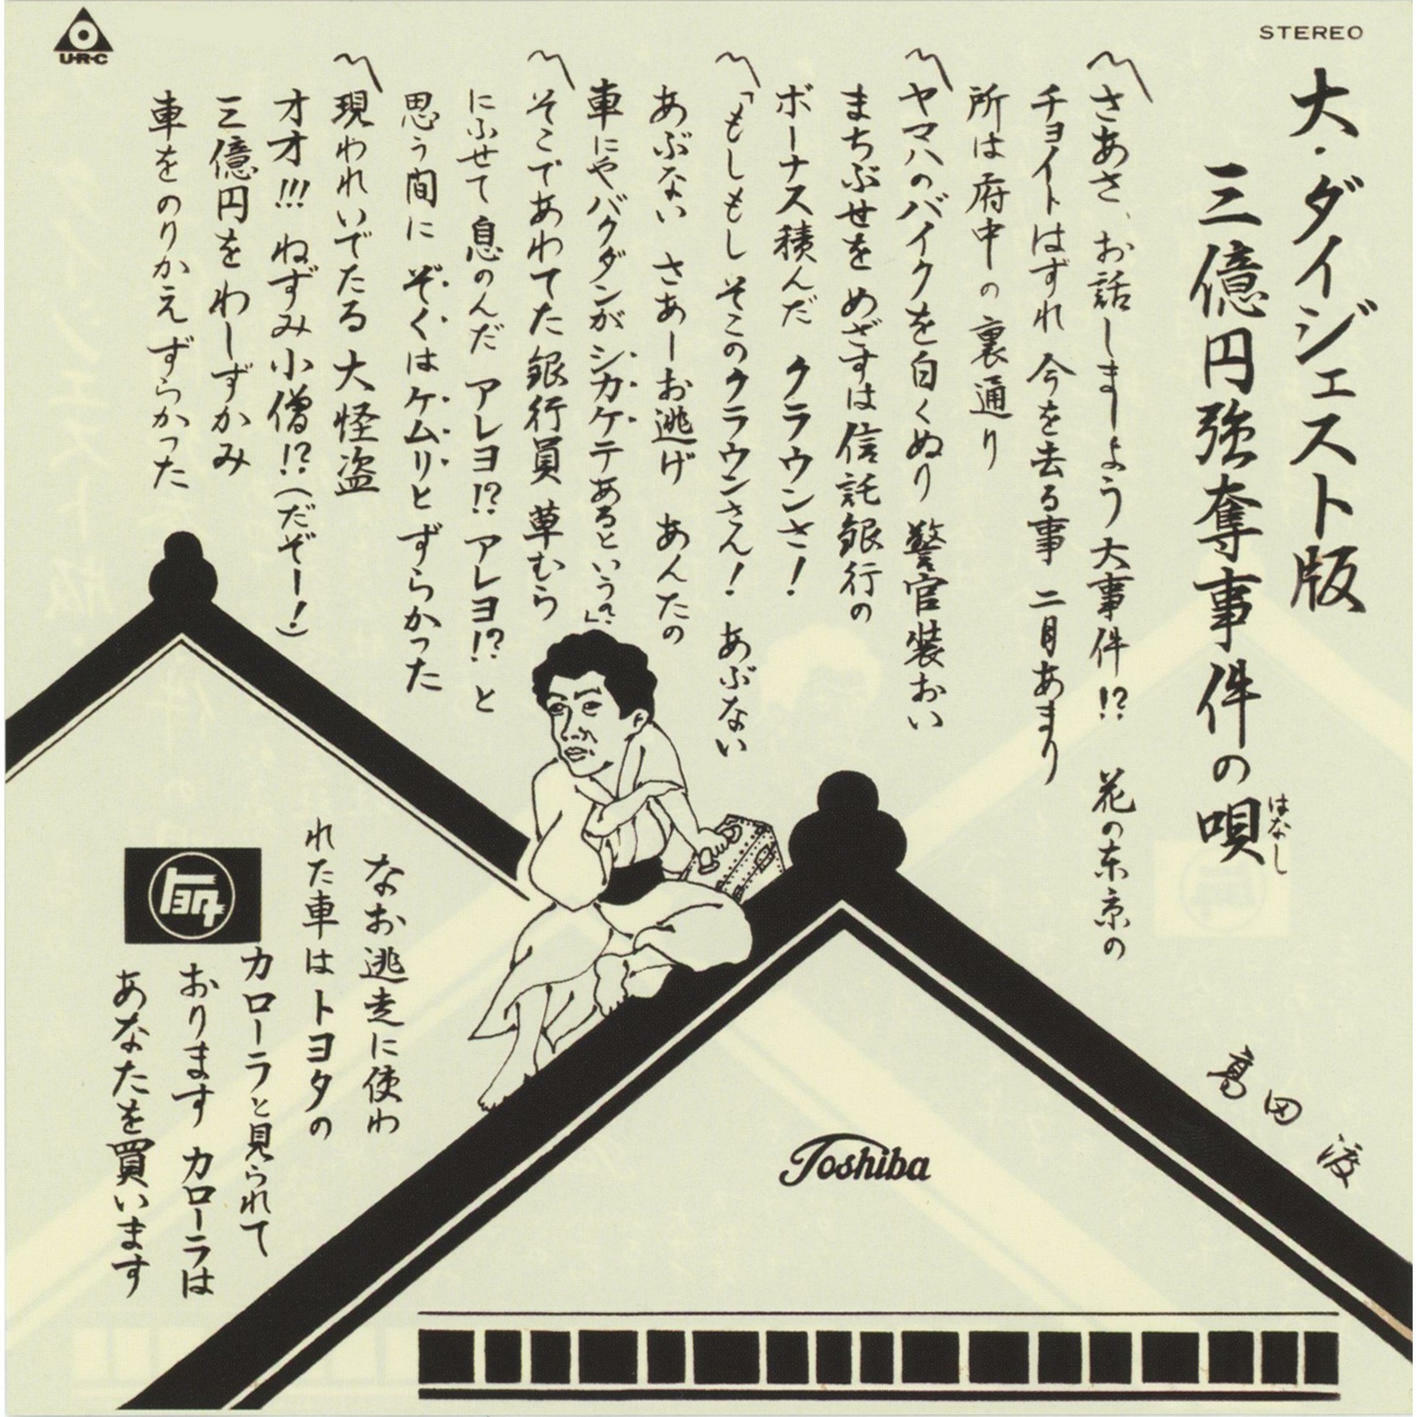 STEREO
U・R・C
大・ダイジェスト版
三億円強奪事件の唄
はなし
高田渡
さあさ、お話しましょう 大事件!? 花の東京の
チョイトはずれ 今を去る事 二月あまり
所は府中の裏通り
ヤマハのバイクを白くぬり 警官装おい
まちぶせを めざすは信託銀行の
ボーナス積んだ クラウンさ!
「もしもし そこのクラウンさん! あぶない
あぶない さあーお逃げ あんたの
車にやバクダンがシカケテあるという。」
そこであわてた銀行員 草むら
にふせて 息のんだ アレヨ!? アレヨ!? と
思う間に ぞくはケムリと ずらかった
現われいでたる 大怪盗
オオ!!! ねずみ小僧!?(だぞー!)
三億円を わーずかみ
車をのりかえ ずらかった
なお逃走に使わ
れた車はトヨタの
カローラと見られて
おります カローラは
あなたを買います
トヨタ
Toshiba